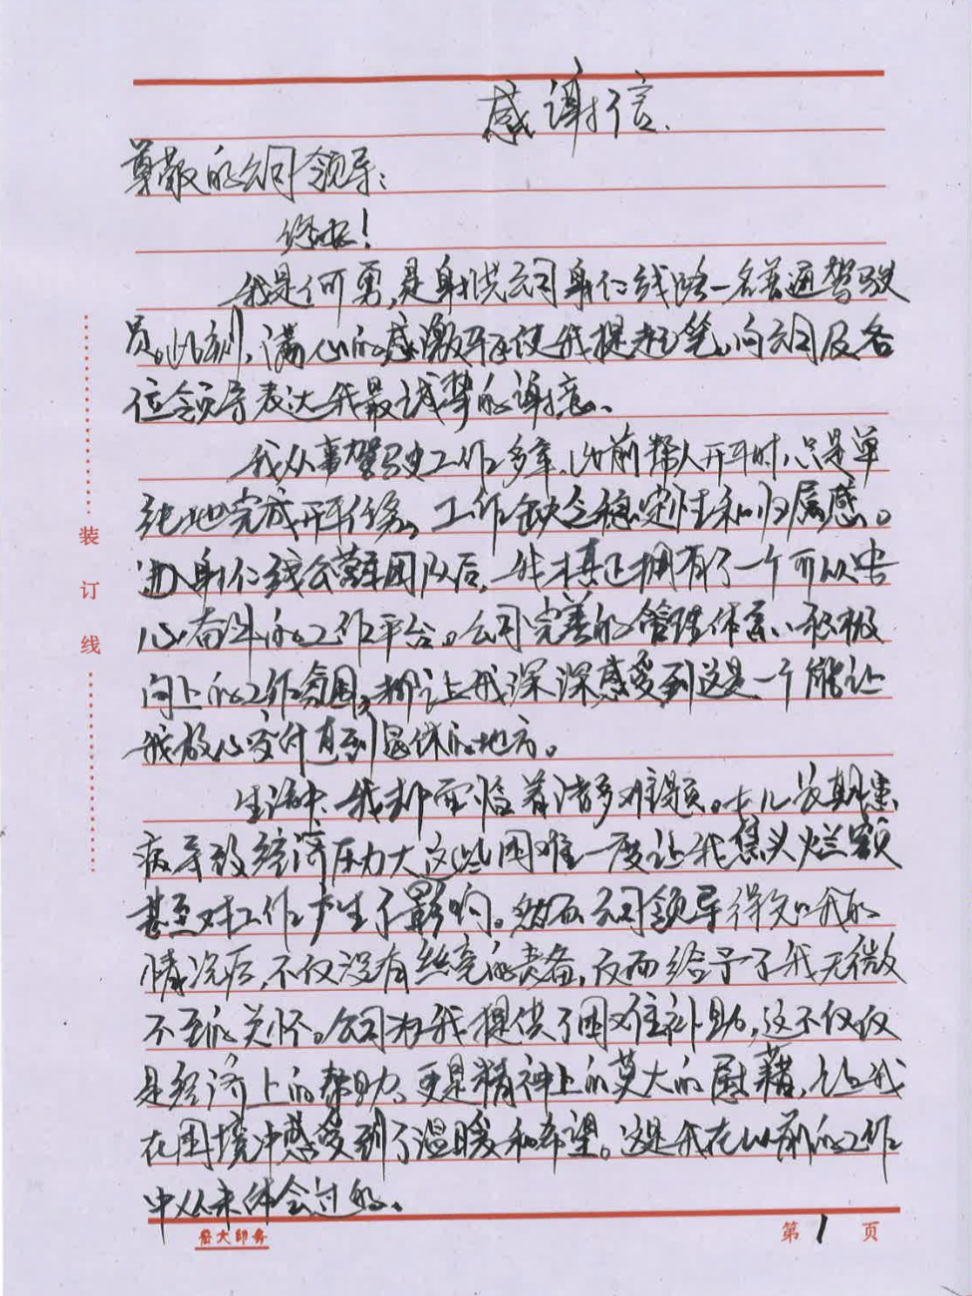 感谢信
尊敬的公司领导：
您好！
我是何勇，是射洪公司射仁线路一名普通驾驶
员。此刻，满心的感激驱使我提起笔，向公司及各
位领导表达我最诚挚的谢意。
我从事驾驶工作多年，以前帮人开车时，只是单
纯地完成开车任务，工作缺乏稳定性和归属感。
进入射仁线公营车团队后，我才真正拥有了一个可以安
心奋斗的工作平台。公司完善的管理体系、积极
向上的工作氛围，都让我深深感受到这是一个能让
我放心交付直到退休的地方。
生活中，我却面临着诸多难题。女儿长期患
病导致经济压力大这些困难一度让我焦头烂额
甚至对工作产生了影响。然而公司领导得知我的
情况后，不仅没有丝毫的责备，反而给予了我无微
不至的关怀。公司为我提供了困难补助，这不仅仅
是经济上的帮助，更是精神上的莫大的慰藉，让我
在困境中感受到了温暖和希望。这是我在以前的工作
中从未体会过的。
装
订
线
岳大印务
第1页